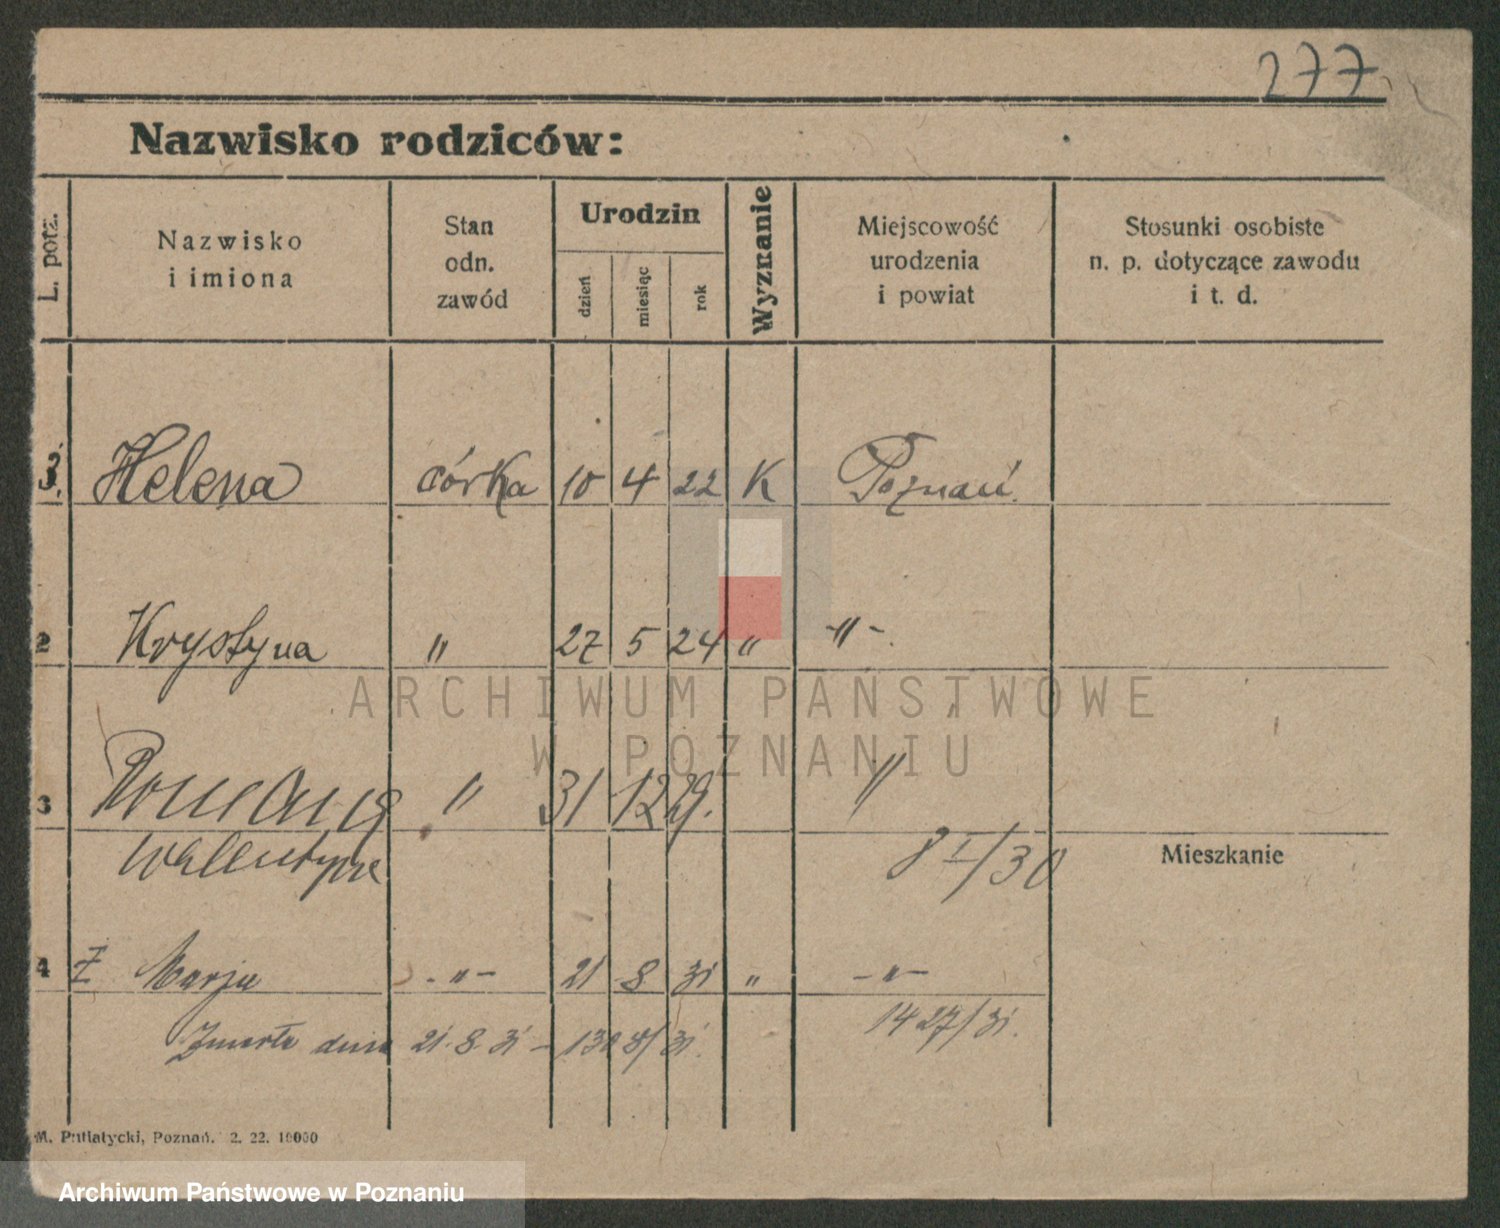 277
Nazwisko rodziców:
L. porz.
Nazwisko i imiona
Stan odn. zawód
Urodzin
dzień
miesiąc
rok
Wyznanie
Miejscowość urodzenia i powiat
Stosunki osobiste n. p. dotyczące zawodu i t. d.
3. Helena córka 10 4 22 K Poznań.
2 Krystyna " 27 5 24 " -"-.
3 Romana " 31 12 29. "
Walentyna 8 I/30
Mieszkanie
4 Ż Marja -"- 21 8 31 " -"-
1427/31.
Zmarła dnia 21.8.31 -
M. Putiatycki, Poznań. 2. 22. 10000
ARCHIWUM PAŃSTWOWE
W POZNANIU
Archiwum Państwowe w Poznaniu